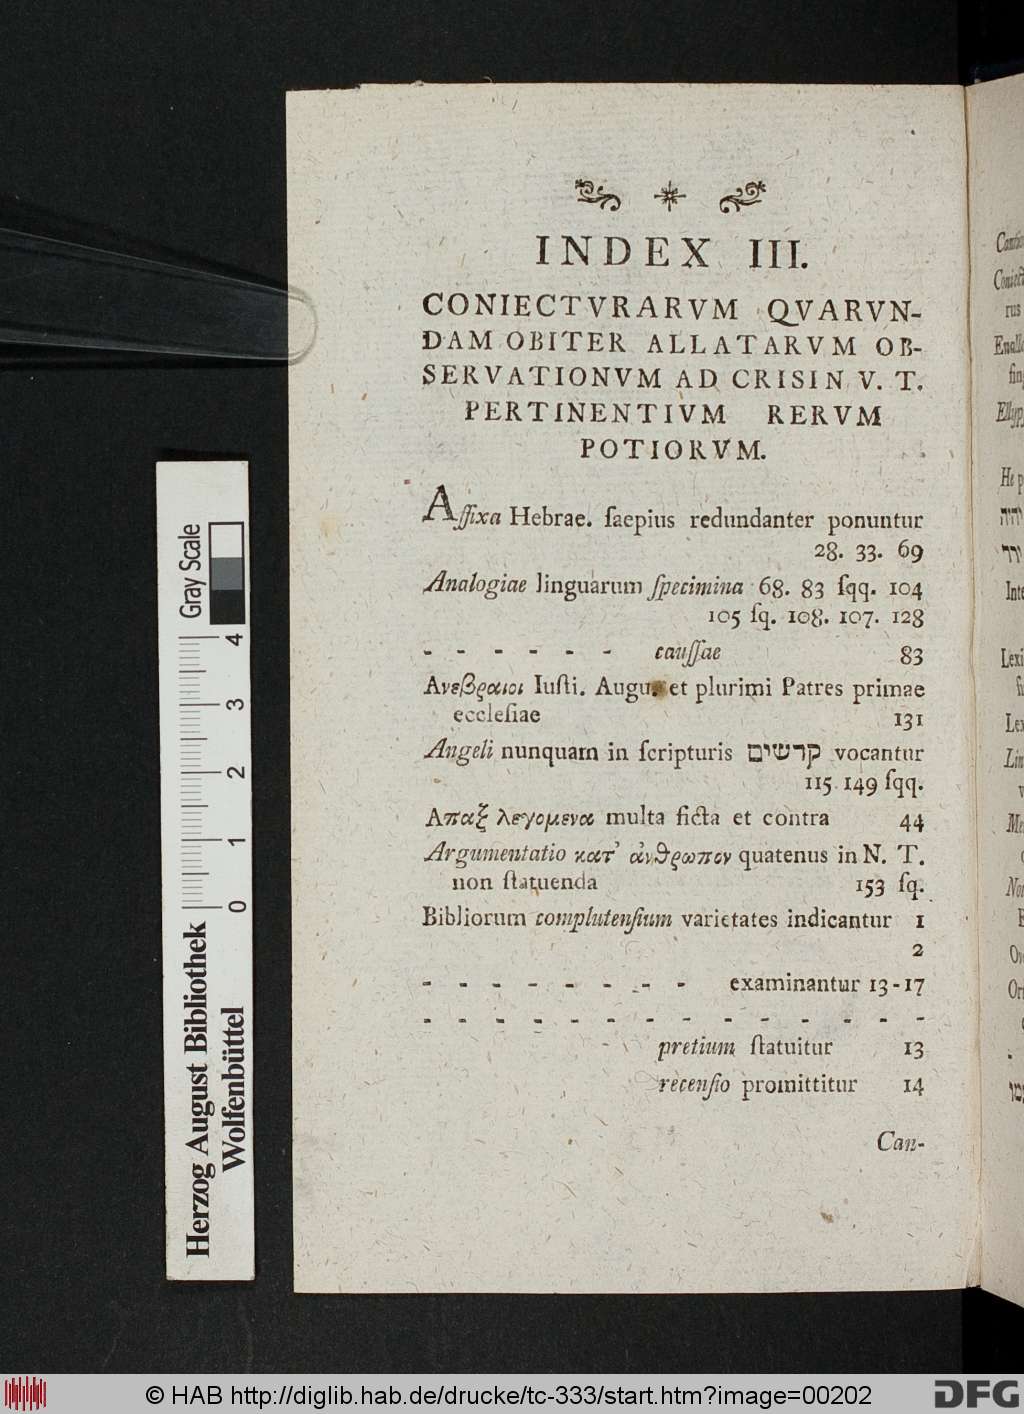 INDEX III.
CONIECTVRARVM QVARVN-
DAM OBITER ALLATARVM OB-
SERVATIONVM AD CRISIN V. T.
PERTINENTIVM RERVM
POTIORVM.
Aſſixa Hebrae. ſaepius redundanter ponuntur
28. 33. 69
Analogiae linguarum ſpecimina 68. 83 ſqq. 104
105 ſq. 108. 107. 128
- - - - - - cauſſae 83
Ανεβραιοι Iuſti. Augu. et plurimi Patres primae
eccleſiae 131
Angeli nunquam in ſcripturis קדשים vocantur
115. 149 ſqq.
Απαξ λεγομενα multa ficta et contra 44
Argumentatio κατ' ἀνθρωπον quatenus in N. T.
non ſtatuenda 153 ſq.
Bibliorum complutenſium varietates indicantur 1
2
- - - - - - - - examinantur 13-17
- - - - - - - - - - - - - -
pretium ſtatuitur 13
recenſio promittitur 14
Can-
Gray Scale
0 1 2 3 4
Herzog August Bibliothek
Wolfenbüttel
He p
יהוה
Lexi
Lex
Lin
© HAB http://diglib.hab.de/drucke/tc-333/start.htm?image=00202
DFG